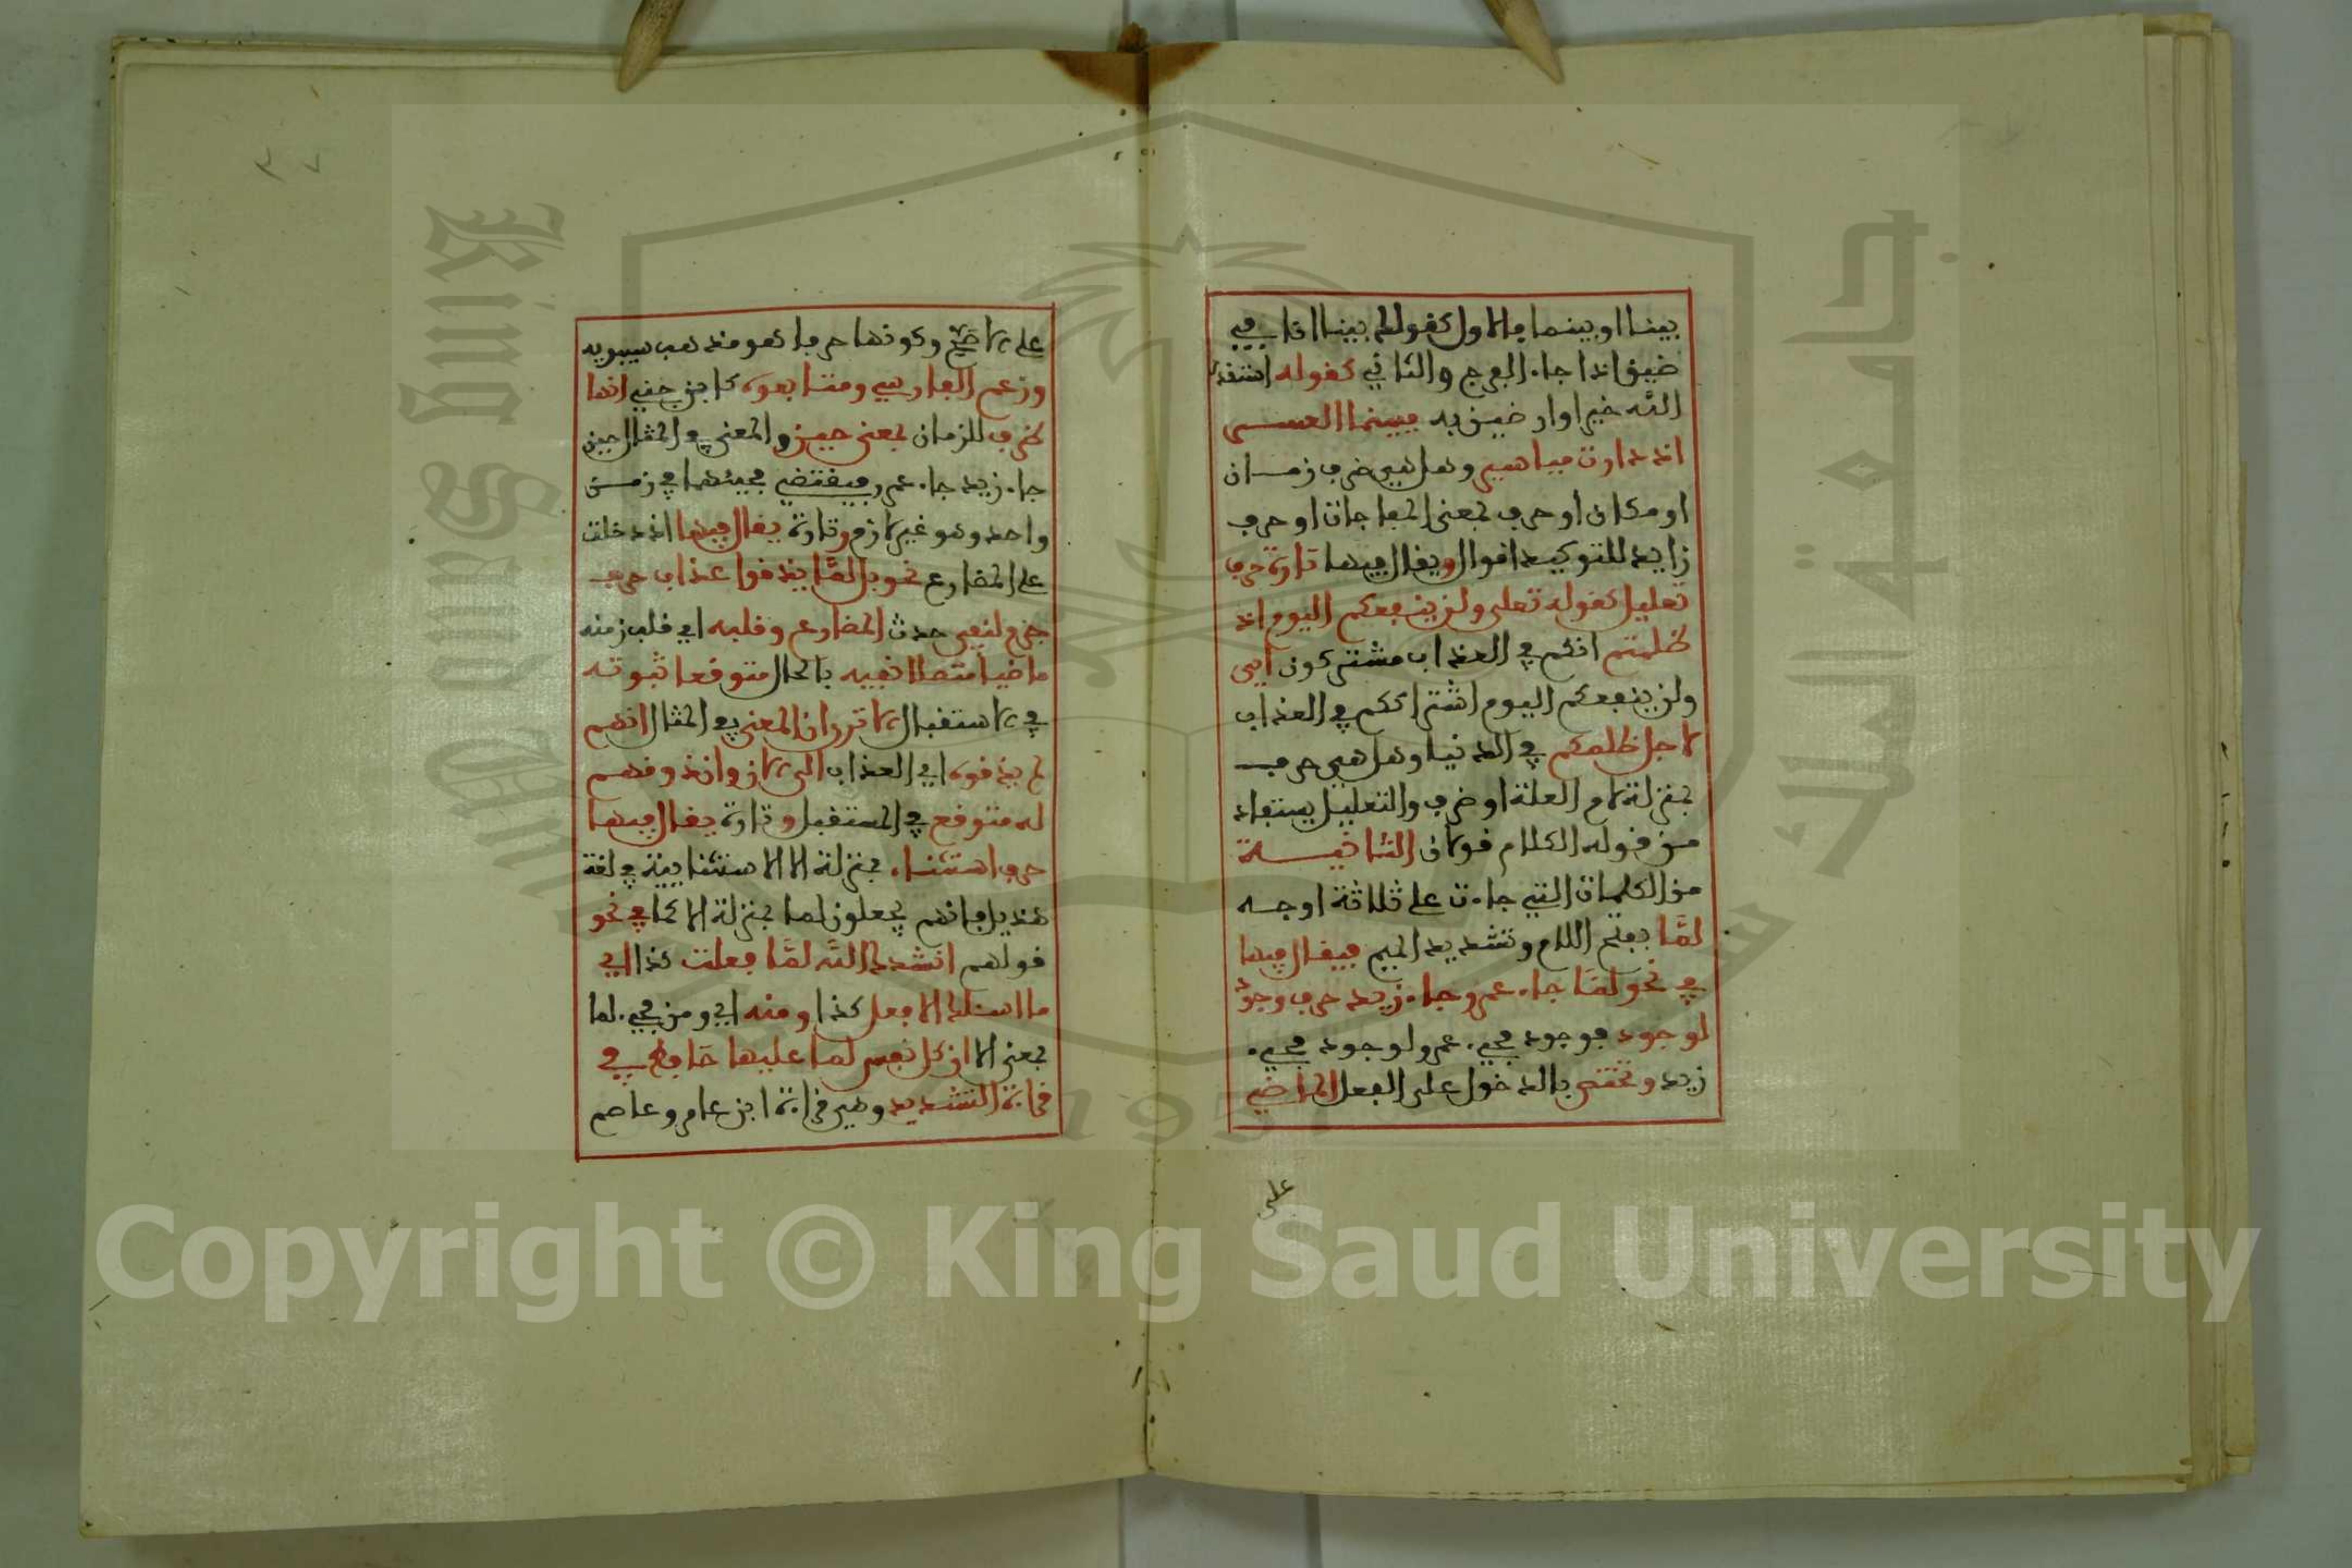 بينا او بينما فالاول كقولك بينا انا في
ضيق اذا جاء الفرج والثاني كقوله استقدر
الله خيرا وارضين به فبينما العسر
اذ دارت مياسير وهل هي ظرف زمان
او مكان او حرف بمعنى المفاجات او حرف
زايد للتوكيد اقوال ويقال فيها تارة حرف
تعليل كقوله تعلى ولن ينفعكم اليوم اذ
ظلمتم انكم في العذاب مشتركون اي
ولن ينفعكم اليوم اشتراككم في العذاب
لاجل ظلمكم في الدنيا وهل هي حرف
بمنزلة لام العلة او ظرف والتعليل يستفاد
من قوله الكلام قولان الثانية
من الكلمات التي جاءت على ثلاثة اوجه
لمَّا بفتح اللام وتشديد الميم فيقال فيها
في نحو لمَّا جاء عمرو جاء زيد حرف وجود
لوجود فوجود مجيء عمرو لوجود مجيء
زيد وتختص بالدخول على الفعل الماضي
على
على الاصح وكونها حرفا هو مذهب سيبويه
وزعم الفارسي ومتابعوه كابن جني انها
ظرف للزمان بمعنى حين والمعنى في المثال حين
جاء زيد جاء عمرو فيقتضي مجيئهما في زمن
واحد وهو غير لازم وتارة يقال فيها اذ دخلت
على المضارع نحو بل لمَّا يذوقوا عذاب حرف
جزم لنفي حدث المضارع وقلبه اي قلب زمنه
ماضيا متصلا نفيه بالحال متوقعا ثبوته
في الاستقبال الا ترى ان المعنى في المثال انهم
لم يذوقوه اي العذاب الى الان وان ذوقهم
له متوقع في المستقبل وتارة يقال فيها
حرف استثناء بمنزلة الا الاستثنايية في لغة
هذيل فانهم يجعلون لما بمنزلة الا كما في نحو
قولهم انشدك الله لمَّا فعلت كذا اي
ما اسئلك الا فعل كذا ومنه اي ومن مجيء لما
بمعنى الا ان كل نفس لما عليها حافظ في
قراءة التشديد وهي قراءة ابن عامر وعاصم
King Saud University
جامعة الملك سعود
1957
Copyright © King Saud University